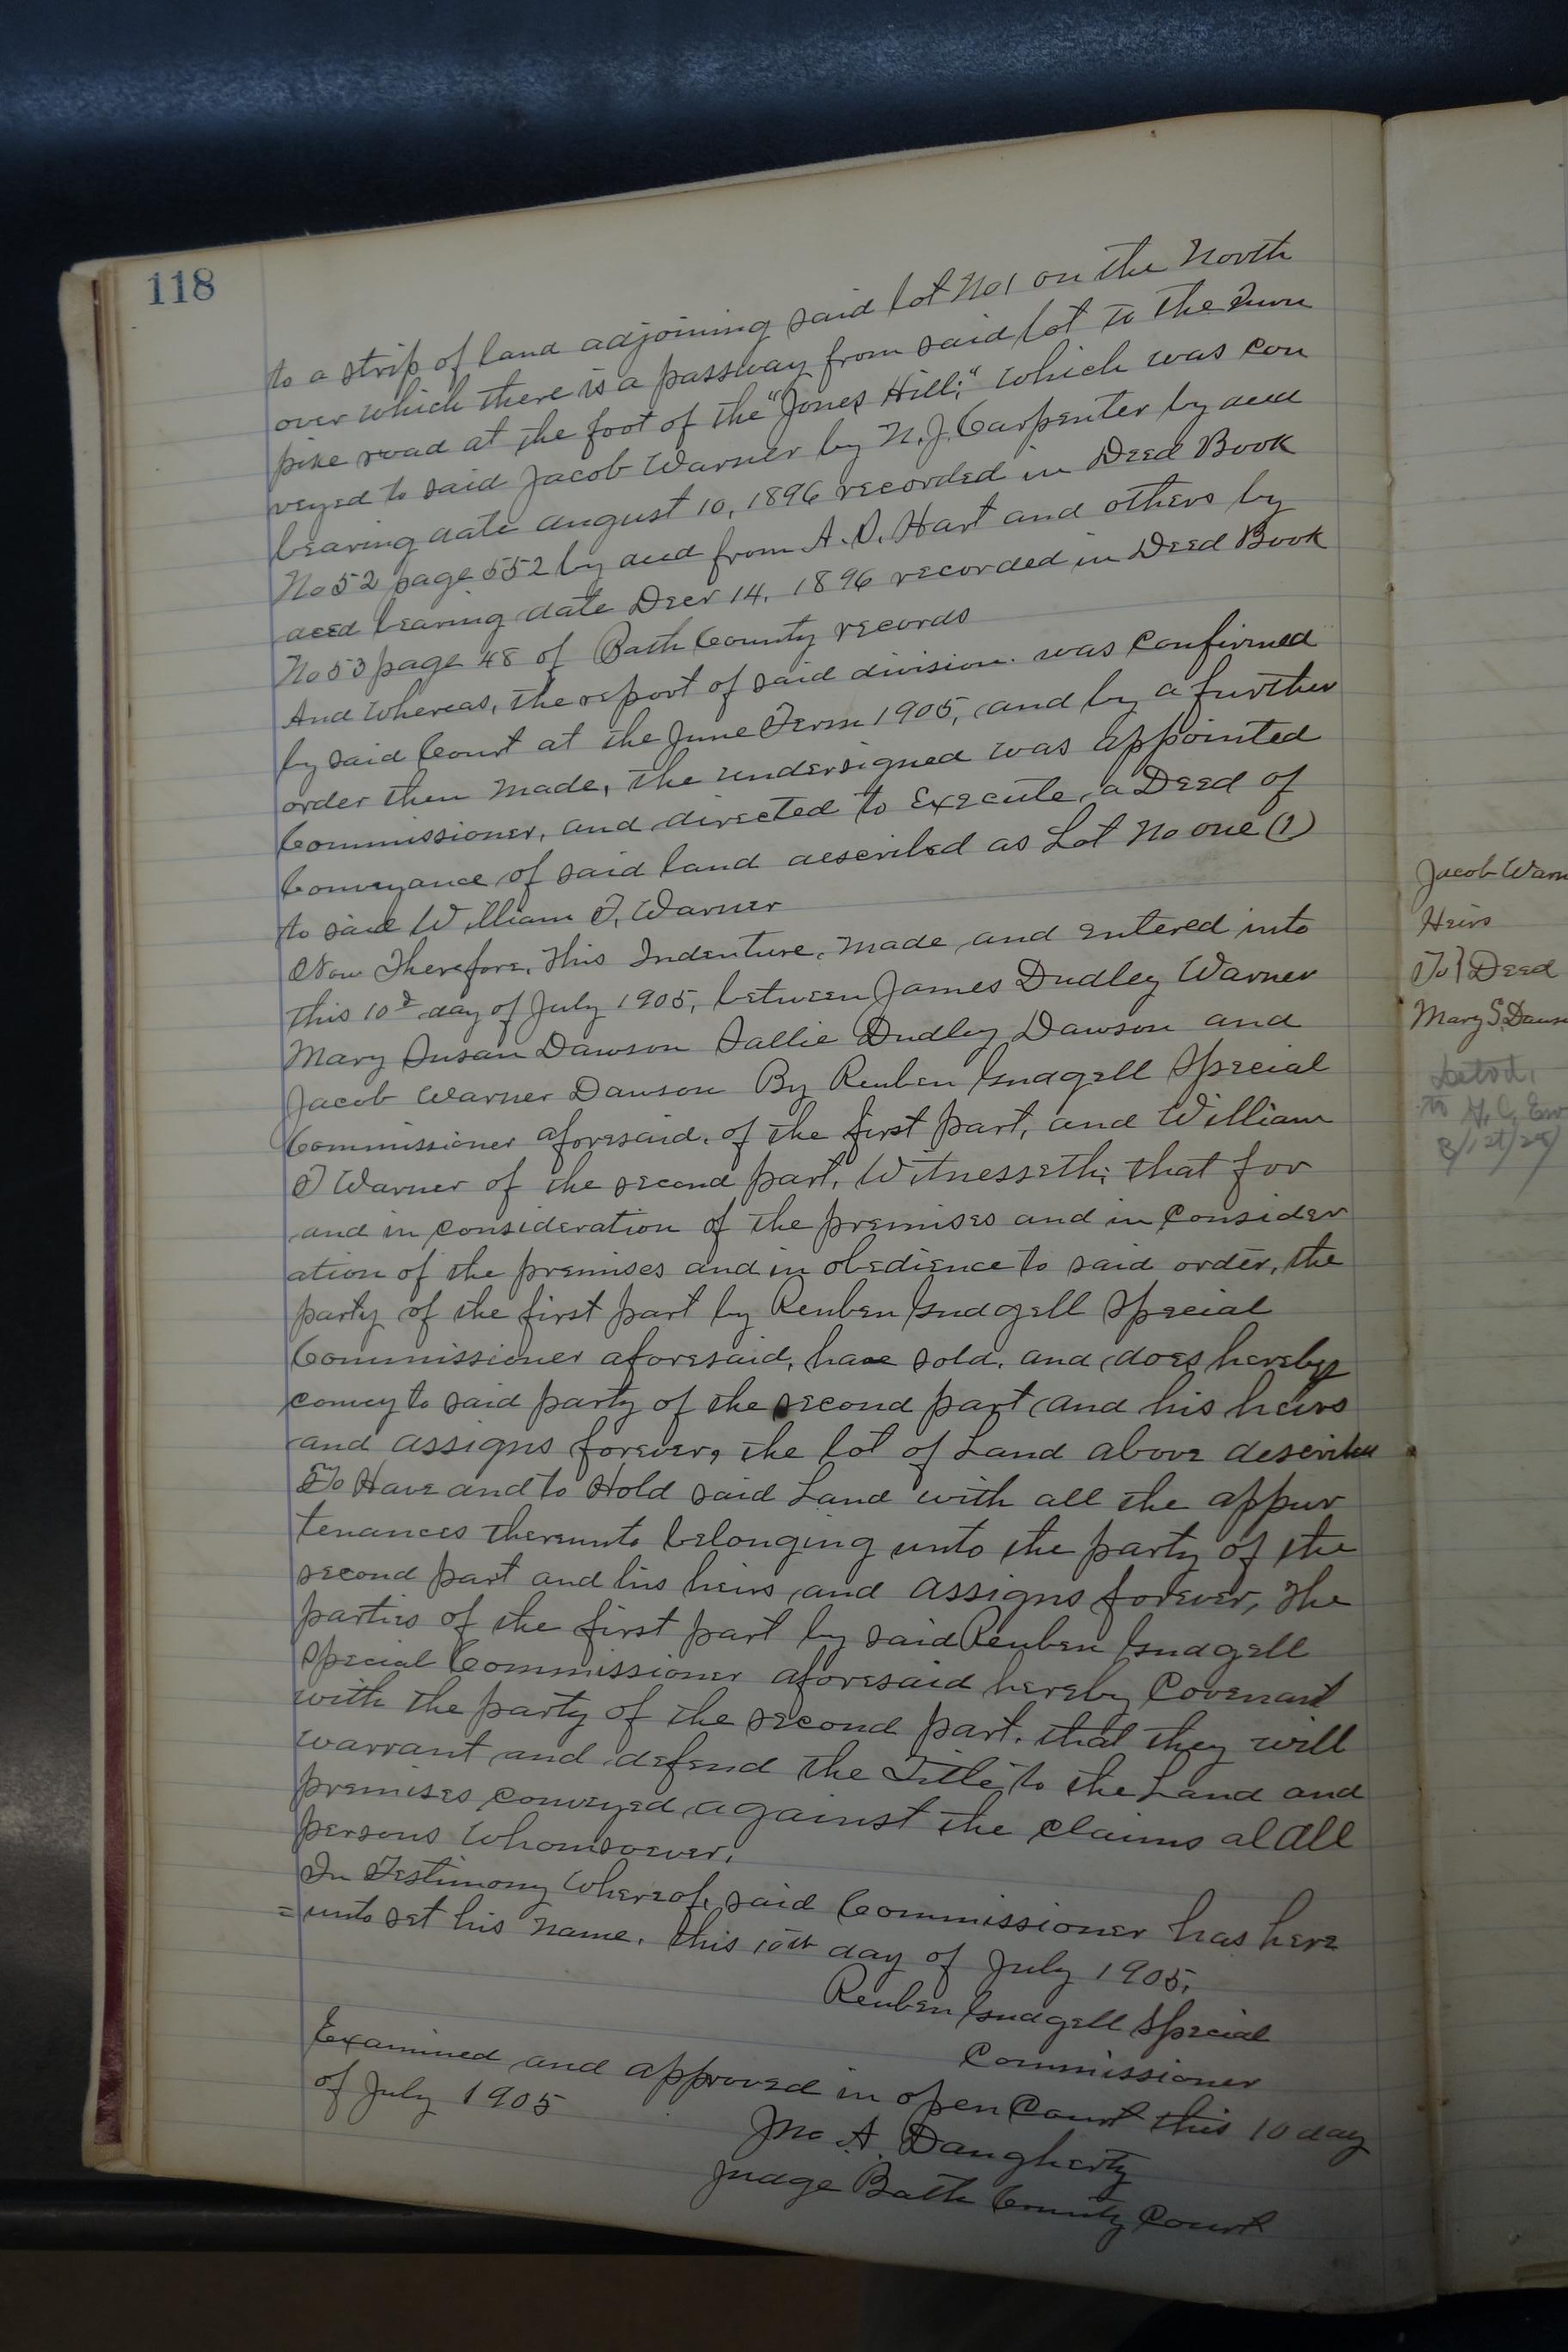 118
to a strip of land adjoining said lot No 1 on the North
over which there is a passway from said lot to the Turn
pike road at the foot of the "Jones Hill;" which was con
veyed to said Jacob Warner by N. J. Carpenter by deed
bearing date august 10, 1896 recorded in Deed Book
No 52 page 552 by deed from A. D. Hart and others by
deed bearing date Decr 14, 1896 recorded in Deed Book
No 53 page 48 of Bath County records
And whereas, the report of said division was confirmed
by said Court at the June Term 1905, and by a further
order then made, the undersigned was appointed
Commissioner, and directed to Execute a Deed of
Conveyance of said land described as Lot No one (1)
to said William T. Warner
Now Therefore, This Indenture, made and entered into
this 10th day of July 1905, between James Dudley Warner
Mary Susan Dawson Sallie Dudley Dawson and
Jacob Warner Dawson By Reuben Gudgell Special
Commissioner aforesaid, of the first part, and William
T Warner of the second part, Witnesseth; that for
and in consideration of the premises and in consider
ation of the premises and in obedience to said order, the
party of the first part by Reuben Gudgell Special
Commissioner aforesaid, have sold, and does hereby
convey to said party of the second part and his heirs
and assigns forever, the lot of Land above described
To Have and to Hold said Land with all the appur
tenances thereunto belonging unto the party of the
second part and his heirs and assigns forever, The
parties of the first part by said Reuben Gudgell
Special Commissioner aforesaid hereby Covenant
with the party of the second part, that they will
warrant and defend the Title to the Land and
premises conveyed against the claims al all
persons whomsoever.
In Testimony Whereof, said Commissioner has here
=unto set his name, this 10th day of July 1905,
Reuben Gudgell Special
Commissioner
Examined and approved in open Court this 10 day
of July 1905
Jno A. Daugherty
Judge Bath County Court
Jacob Warn
Heirs
To } Deed
Mary S. Daws
to H. C.